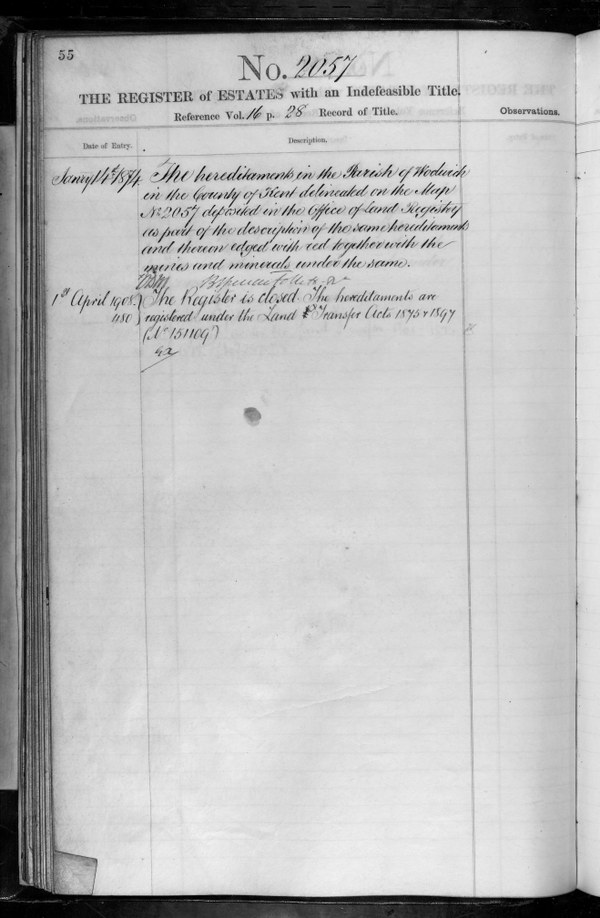 55
No. 2057
THE REGISTER of ESTATES with an Indefeasible Title.
Reference Vol. 16 p. 28 Record of Title.
Observations.
Date of Entry.
Description.
Janry 14th 1874. The hereditaments in the Parish of Woolwich
in the County of Kent delineated on the Map
No. 2057 deposited in the Office of Land Registry
as part of the description of the same hereditaments
and thereon edged with red together with the
mines and minerals under the same.
1st April 1908. The Register is closed. The hereditaments are
480 registered under the Land Transfer Acts 1875 & 1897
(No 151109)